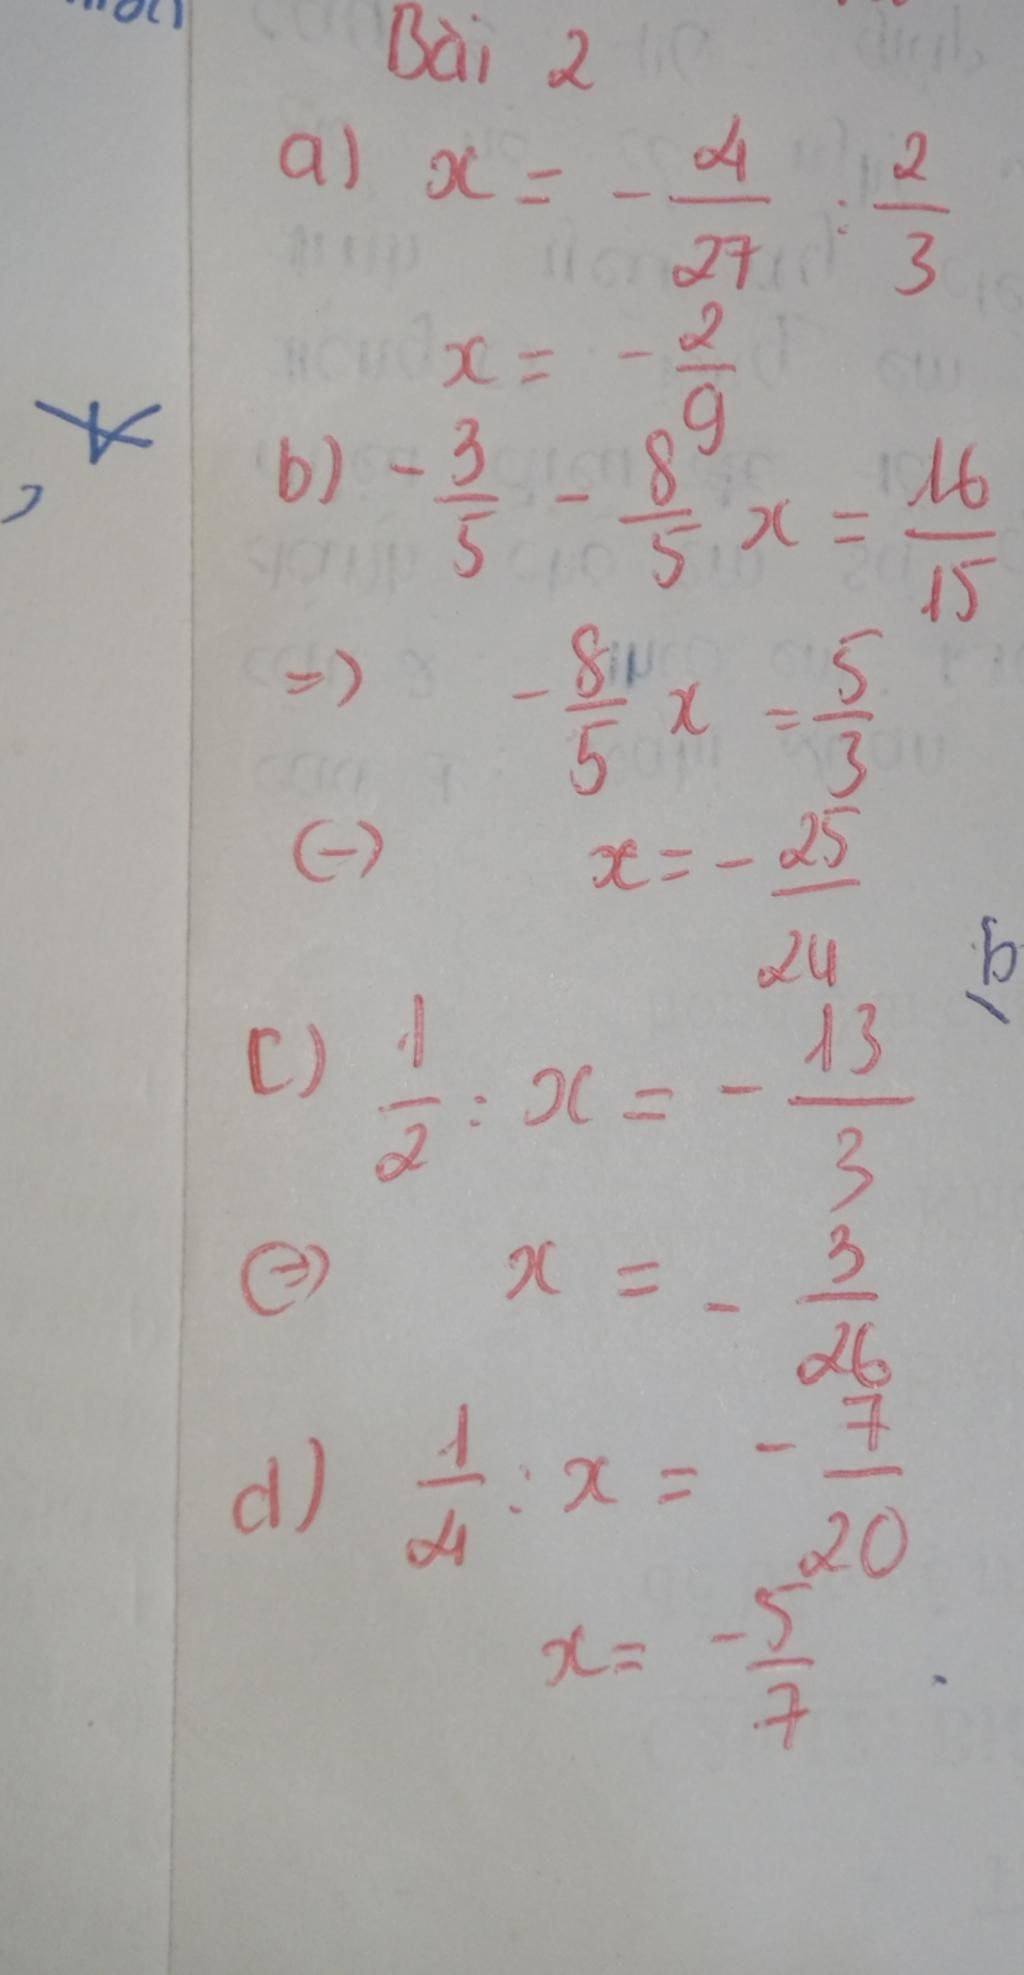 Bài 2
a) x = - 4/27 : 2/3
x = - 2/9
b) - 3/5 - 8/5 x = 16/15
=) - 8/5 x = 5/3
(-) x = - 25/24
c) 1/2 : x = - 13/3
(=) x = - 3/26
d) 1/4 : x = - 7/20
x = - 5/7